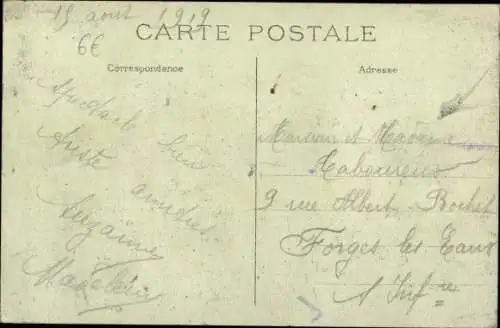 15 août 1919
6€
CARTE POSTALE
Correspondance
Adresse
Spectacle bien
triste amitiés
Suzanne
Madeleine
Monsieur et Madame
9 rue Albert Bochet
Forges les Eaux
S Inf re